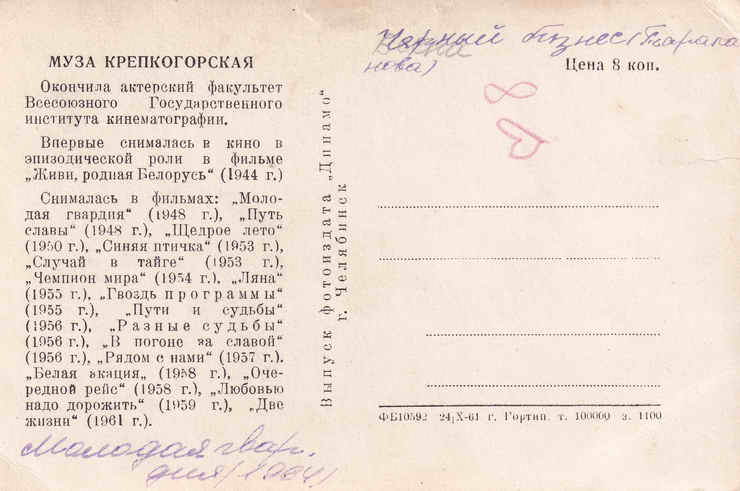 МУЗА КРЕПКОГОРСКАЯ
Окончила актерский факультет
Всесоюзного Государственного
института кинематографии.
Впервые снималась в кино в
эпизодической роли в фильме
„Живи, родная Белорусь“ (1944 г.)
Снималась в фильмах: „Моло-
дая гвардия“ (1948 г.), „Путь
славы“ (1948 г.), „Щедрое лето“
(1950 г.), „Синяя птичка“ (1953 г.),
„Случай в тайге“ (1953 г.),
„Чемпион мира“ (1954 г.), „Ляна“
(1955 г.), „Гвоздь программы“
(1955 г.), „Пути и судьбы“
(1956 г.), „Разные судьбы“
(1956 г.), „В погоне за славой“
(1956 г.), „Рядом с нами“ (1957 г.).
„Белая акация„ (1958 г.), „Оче-
редной рейс“ (1958 г.), „Любовью
надо дорожить“ (1959 г.), „Две
жизни“ (1961 г.).
Молодая гвар-
дия (1964)
Выпуск фотоиздата „Динамо“
г. Челябинск
Черный бизнес (Тарака
нова)
Цена 8 коп.
8
ФБ10592 24/X-61 г. Гортип. т. 100000 з. 1100